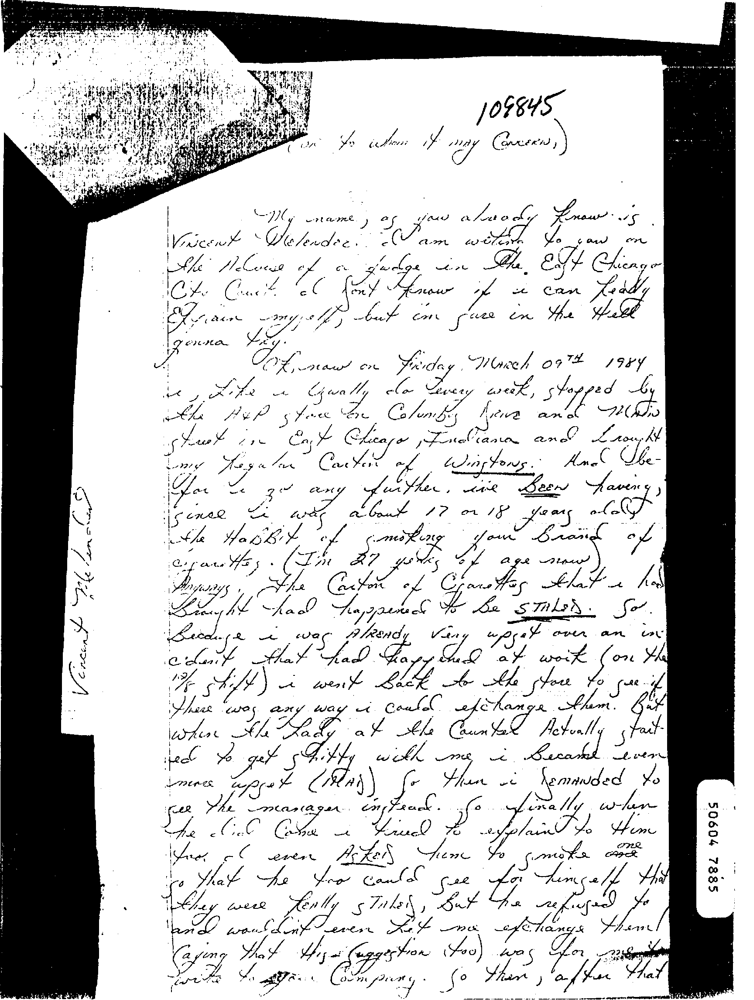 109845
(or to whom it may Concern,)
My name, as you already know is
Vincent Melendez. I am writing to you on
the Advise of a judge in the East Chicago
City Court. I don't know if i can Really
Explain myself, but im sure in the Hell
gonna try.
Ok, now on Friday March 09TH 1984
i, Like i Usually do every week, stopped by
the A&P store on Columbus Drive and Main
street in East Chicago, Indiana and Brought
my Regular Carton of Winstons. And be-
for i go any further, ive BEEN having,
since i was about 17 or 18 years old
the HaBBit of smoking your Brand of
cigarettes. (I'm 27 years of age now)
Anyways, the Carton of Cigarettes that i had
Brought had happened to be STALED. So
Because i was AlReady Very upset over an in-
cident that had happened at work (on the
12/8 shift) i went Back to the store to see if
there was any way i could exchange them. But
when the Lady at the Counter Actually start-
ed to get shitty with me i became even
more upset (MAD) So then i DEMANDED to
see the manager instead. So finally when
he did Come i tried to explain to Him
too. I even ASKED him to smoke one
so that he too could see for himself that
they were Really STALED, But he refused to
and wouldint even Let me exchange them!
Saying that His suggestion (too) was for me to
write to your Company. So then, after that
Vincent Melendez
50604 7885